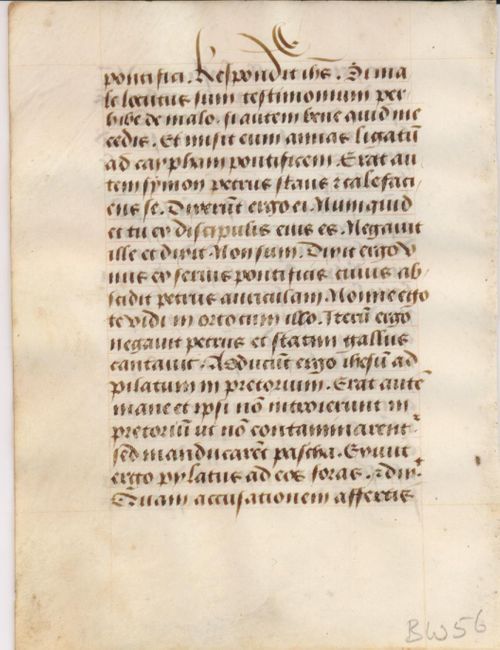 pontifici. Respondit ihs. Si ma
le locutus sum testimonium per/
hibe de malo. si autem bene quid me
cedis. Et misit eum annas ligatū
ad caypham pontificem. Erat au/
tem symon petrus stans ⁊ calefaci/
ens se. Dixerūt ergo ei. Numquid
et tu ex discipulis eius es. Negauit
ille et dixit Non sum. Dixit ergo v
nus ex seruis pontificis cuius ab/
scidit petrus auriculam. Nonne ego
te vidi in orto cum illo. Iterū ergo
negauit petrus et statim gallus
cantauit. Adducūt ergo ihesum ad
pilatum in pretorium. Erat autē
mane et ipsi nō introierunt in
pretoriū ut nō contaminarent̃
sed manducarēt pascha. Exiuit
ergo pylatus ad eos foras. ⁊ dix̃.
Quam accusationem affertis
BW56